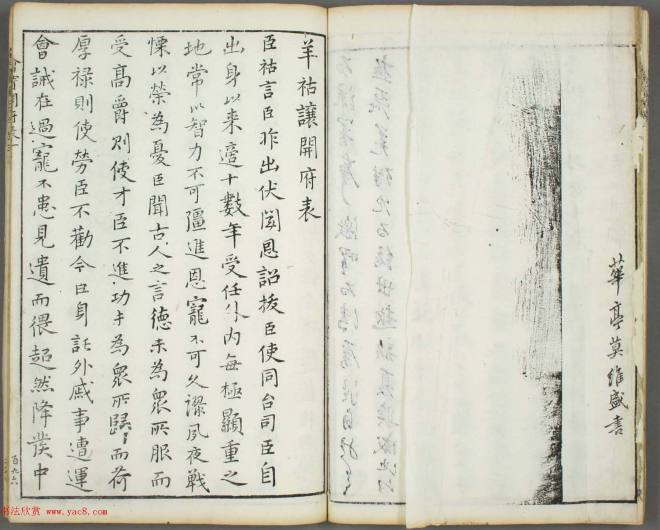 華亭莫維盛書
羊祜讓開府表
臣祜言臣昨出伏聞恩詔拔臣使同台司臣自
出身以来適十數年受任外内每極顯重之
地常以智力不可彊進恩寵不可久謬夙夜戰
慄以榮為憂臣聞古人之言德未為眾所服而
受高爵則使才臣不進功未為眾所歸而荷
厚禄則使勞臣不勸今臣身託外戚事遭運
會誡在過寵不患見遺而猥超然降發中
百九六
书法欣赏 www.yac8.com